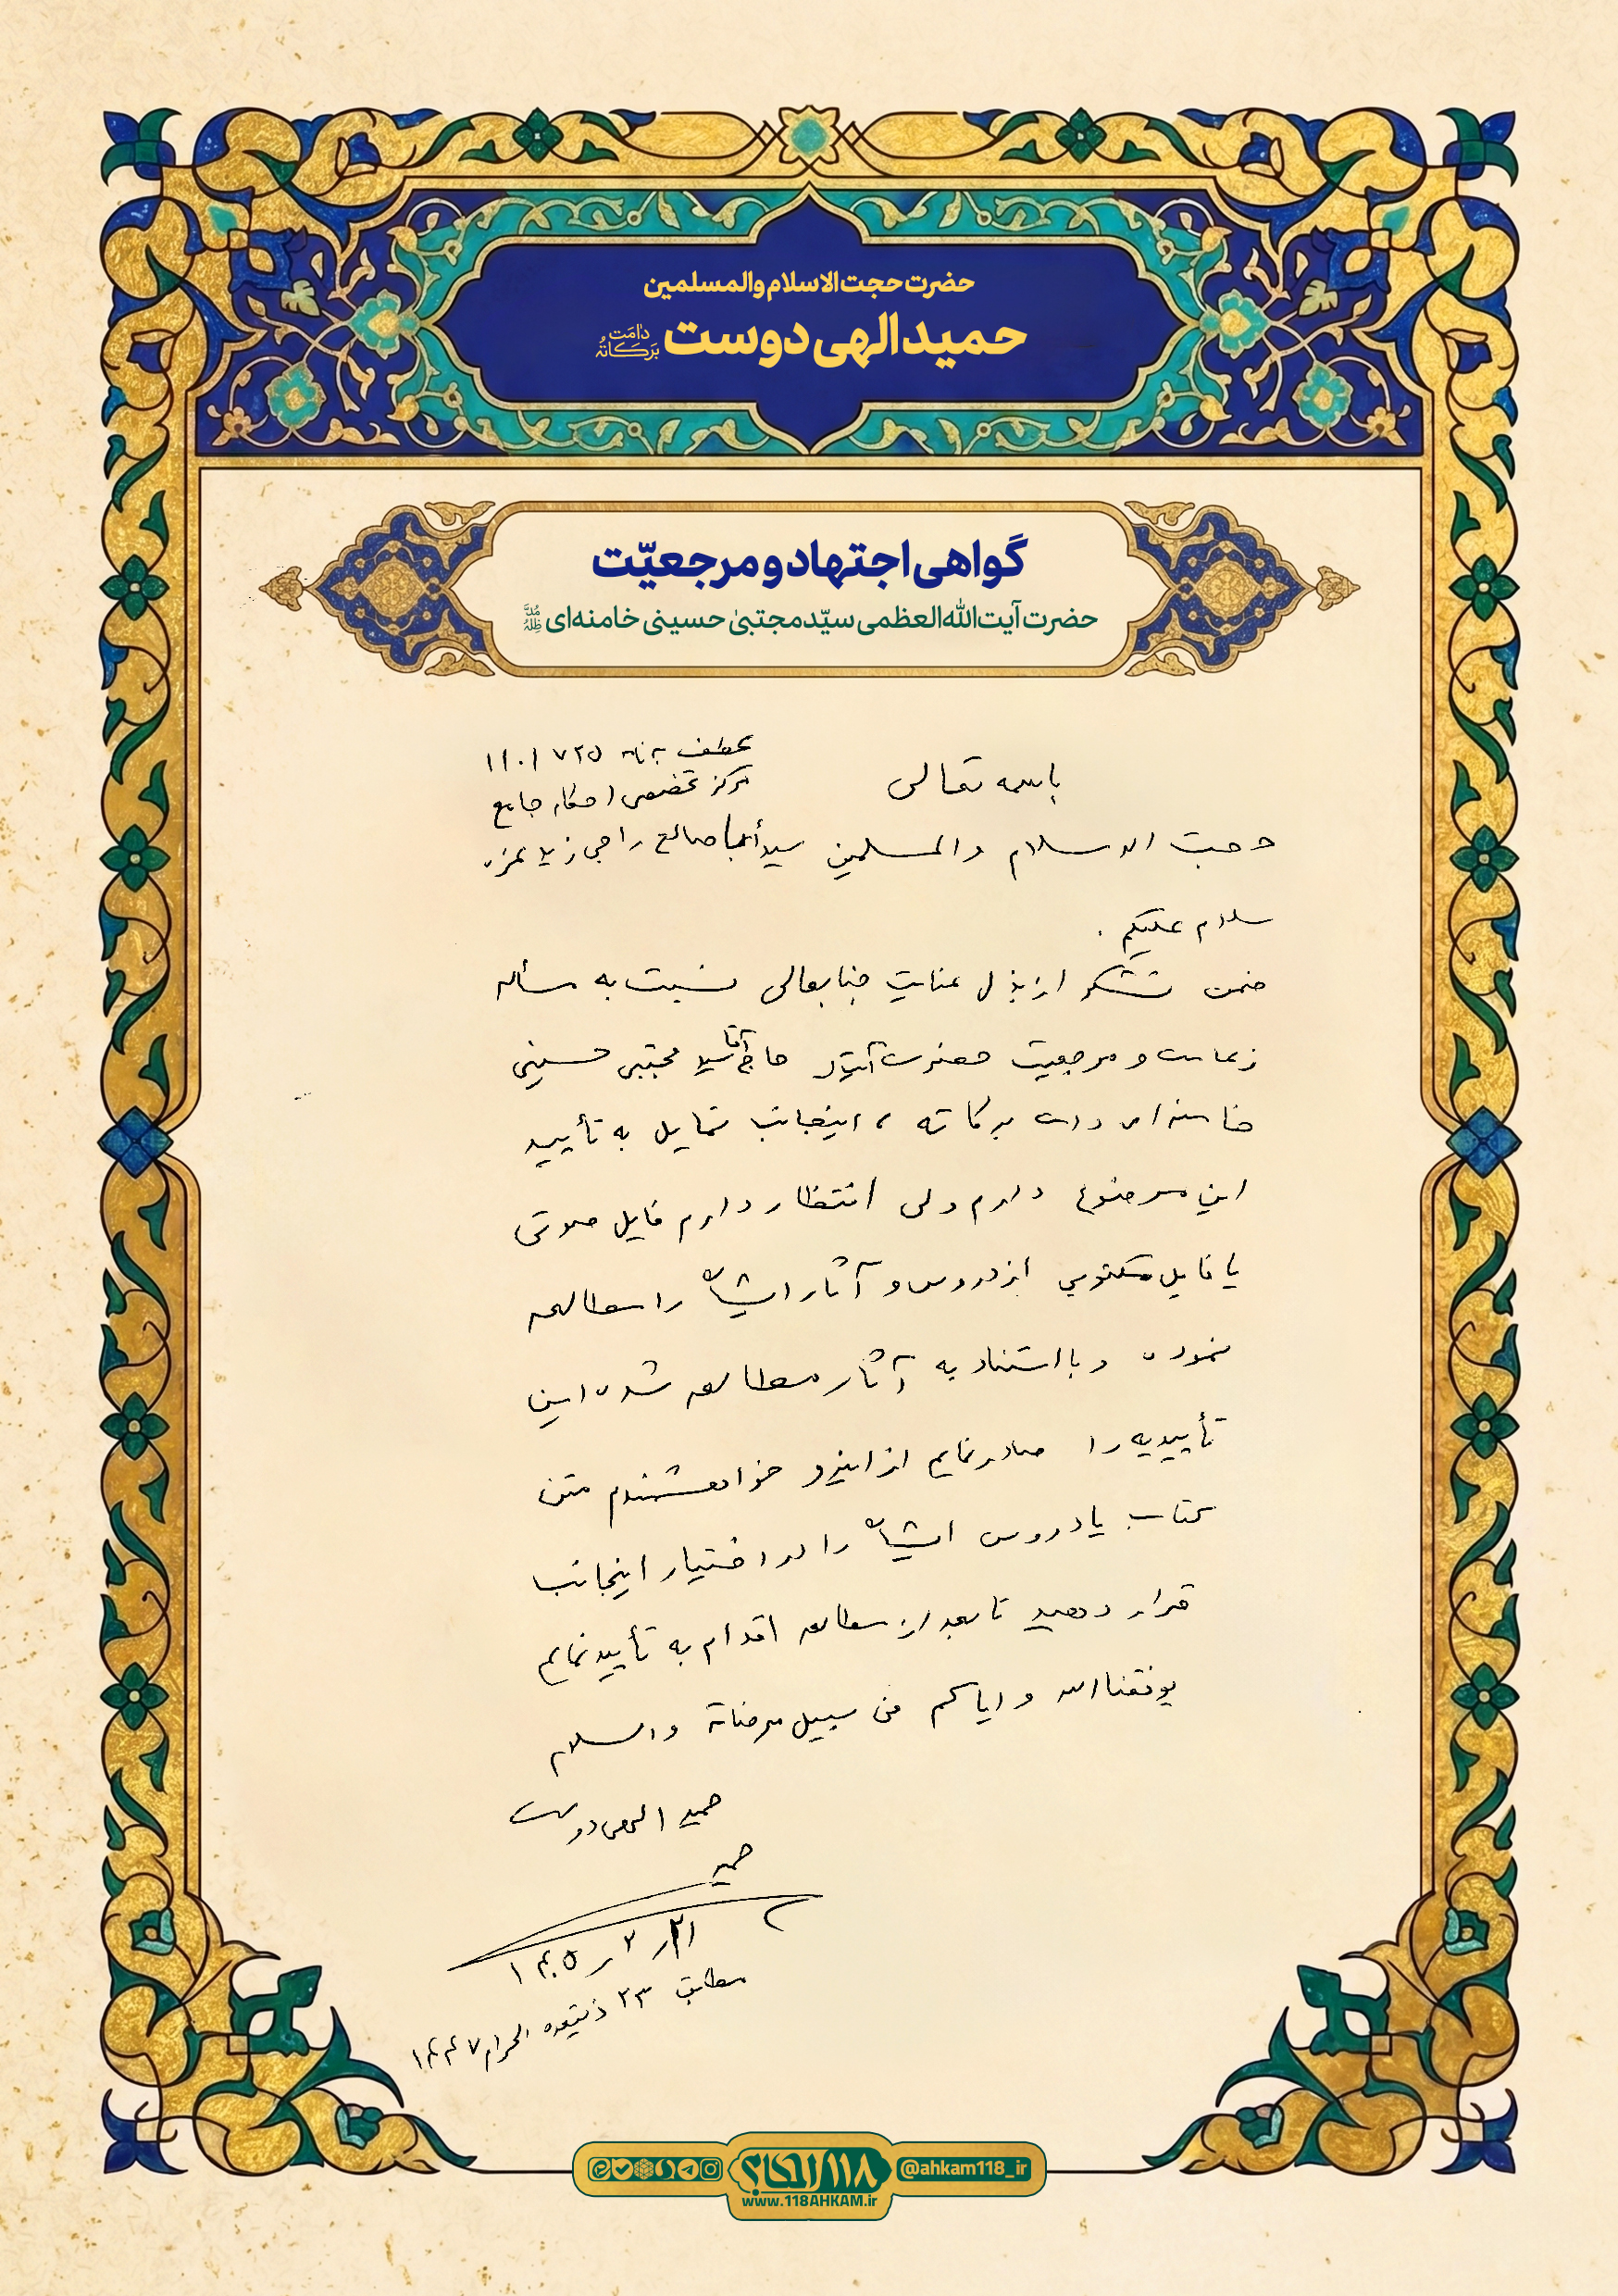 حضرت حجت الاسلام والمسلمین
حمید الهی دوست دامَت بَرَکاتُه
گواهی اجتهاد و مرجعیّت
حضرت آیت‌الله‌العظمی سیّد مجتبیٰ حسینی خامنه‌ای مُدَّ ظِلُّهُ
باسمه تعالی
عطف به نامه ۱۱۰۱۷۲۵
مرکز تخصصی احکام جامع
حجت الاسلام والمسلمین سید أباصالح راجی زید عزه
سلام علیکم.
ضمن تشکر از بذل عنایت جنابعالی نسبت به مسأله
زعامت و مرجعیت حضرت آیت الله حاج آقا سید مجتبی حسینی
خامنه ای دامت برکاته، اینجانب تمایل به تأیید
این موضوع دارم ولی انتظار دارم فایل صوتی
یا فایل مکتوبی از دروس و آثار ایشان را مطالعه
نموده و با استناد به آثار مطالعه شده این
تأییدیه را صادر نمایم از اینرو خواهشمندم متن
کتاب یا دروس ایشان را در اختیار اینجانب
قرار دهید تا بعد از مطالعه اقدام به تأیید نمایم
یوفقنا الله و ایاکم فی سبیل مرضاته والسلام
حمید الهی دوست
حمید
۱۴۰۵/۲/۲۱
مطابق ۲۳ ذیقعده الحرام ۱۴۴۷
۱۱۸ احکام
@ahkam118_ir
www.118AHKAM.ir